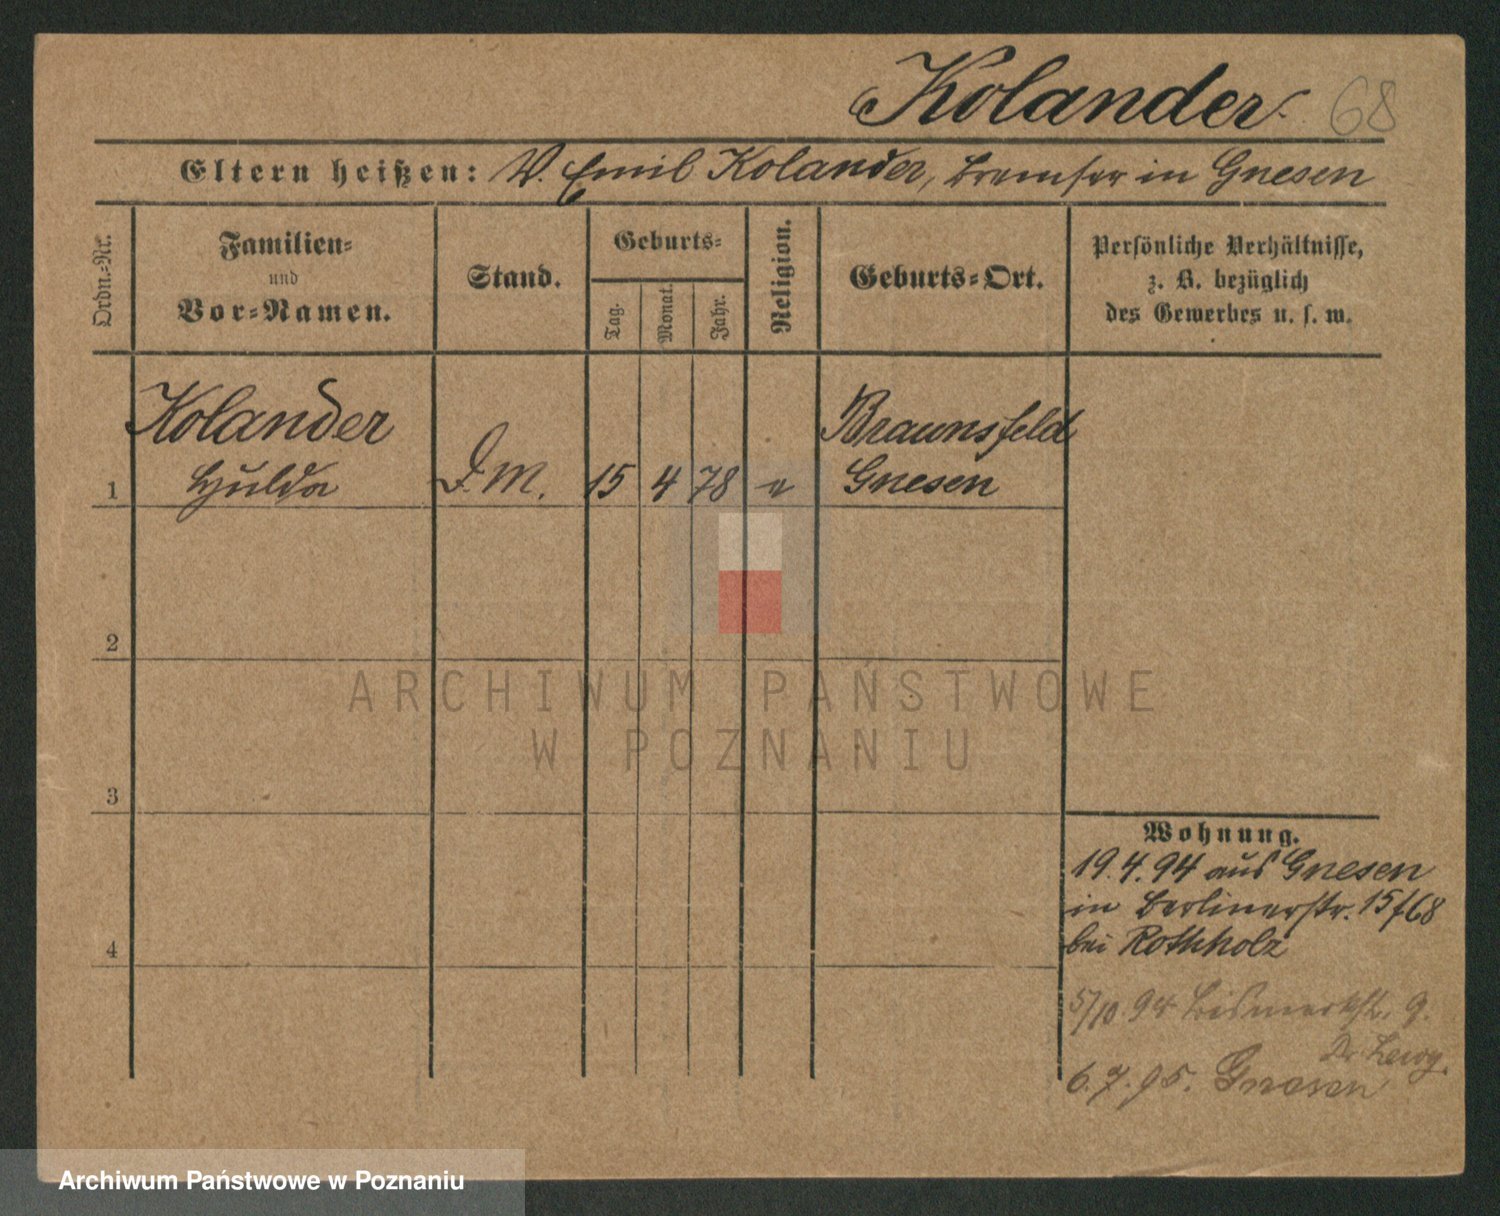 Kolander. 68
Eltern heißen: V. Emil Kolander, Bremser in Gnesen
Ordn.-Nr.
Familien-
und
Vor-Namen.
Stand.
Geburts-
Tag.
Monat.
Jahr.
Religion.
Geburts-Ort.
Persönliche Verhältnisse,
z. B. bezüglich
des Gewerbes u. s. w.
Kolander Braunsfeld
1 Hulda D. M. 15 4 78 e Gnesen
2
ARCHIWUM PAŃSTWOWE
W POZNANIU
3
Wohnung.
19.4.94 aus Gnesen
in Berlinerstr. 15/68
bei Rothholz
4
5/10 94 Bismarckstr. 9.
Dr Lewy.
6.7.95. Gnesen
Archiwum Państwowe w Poznaniu